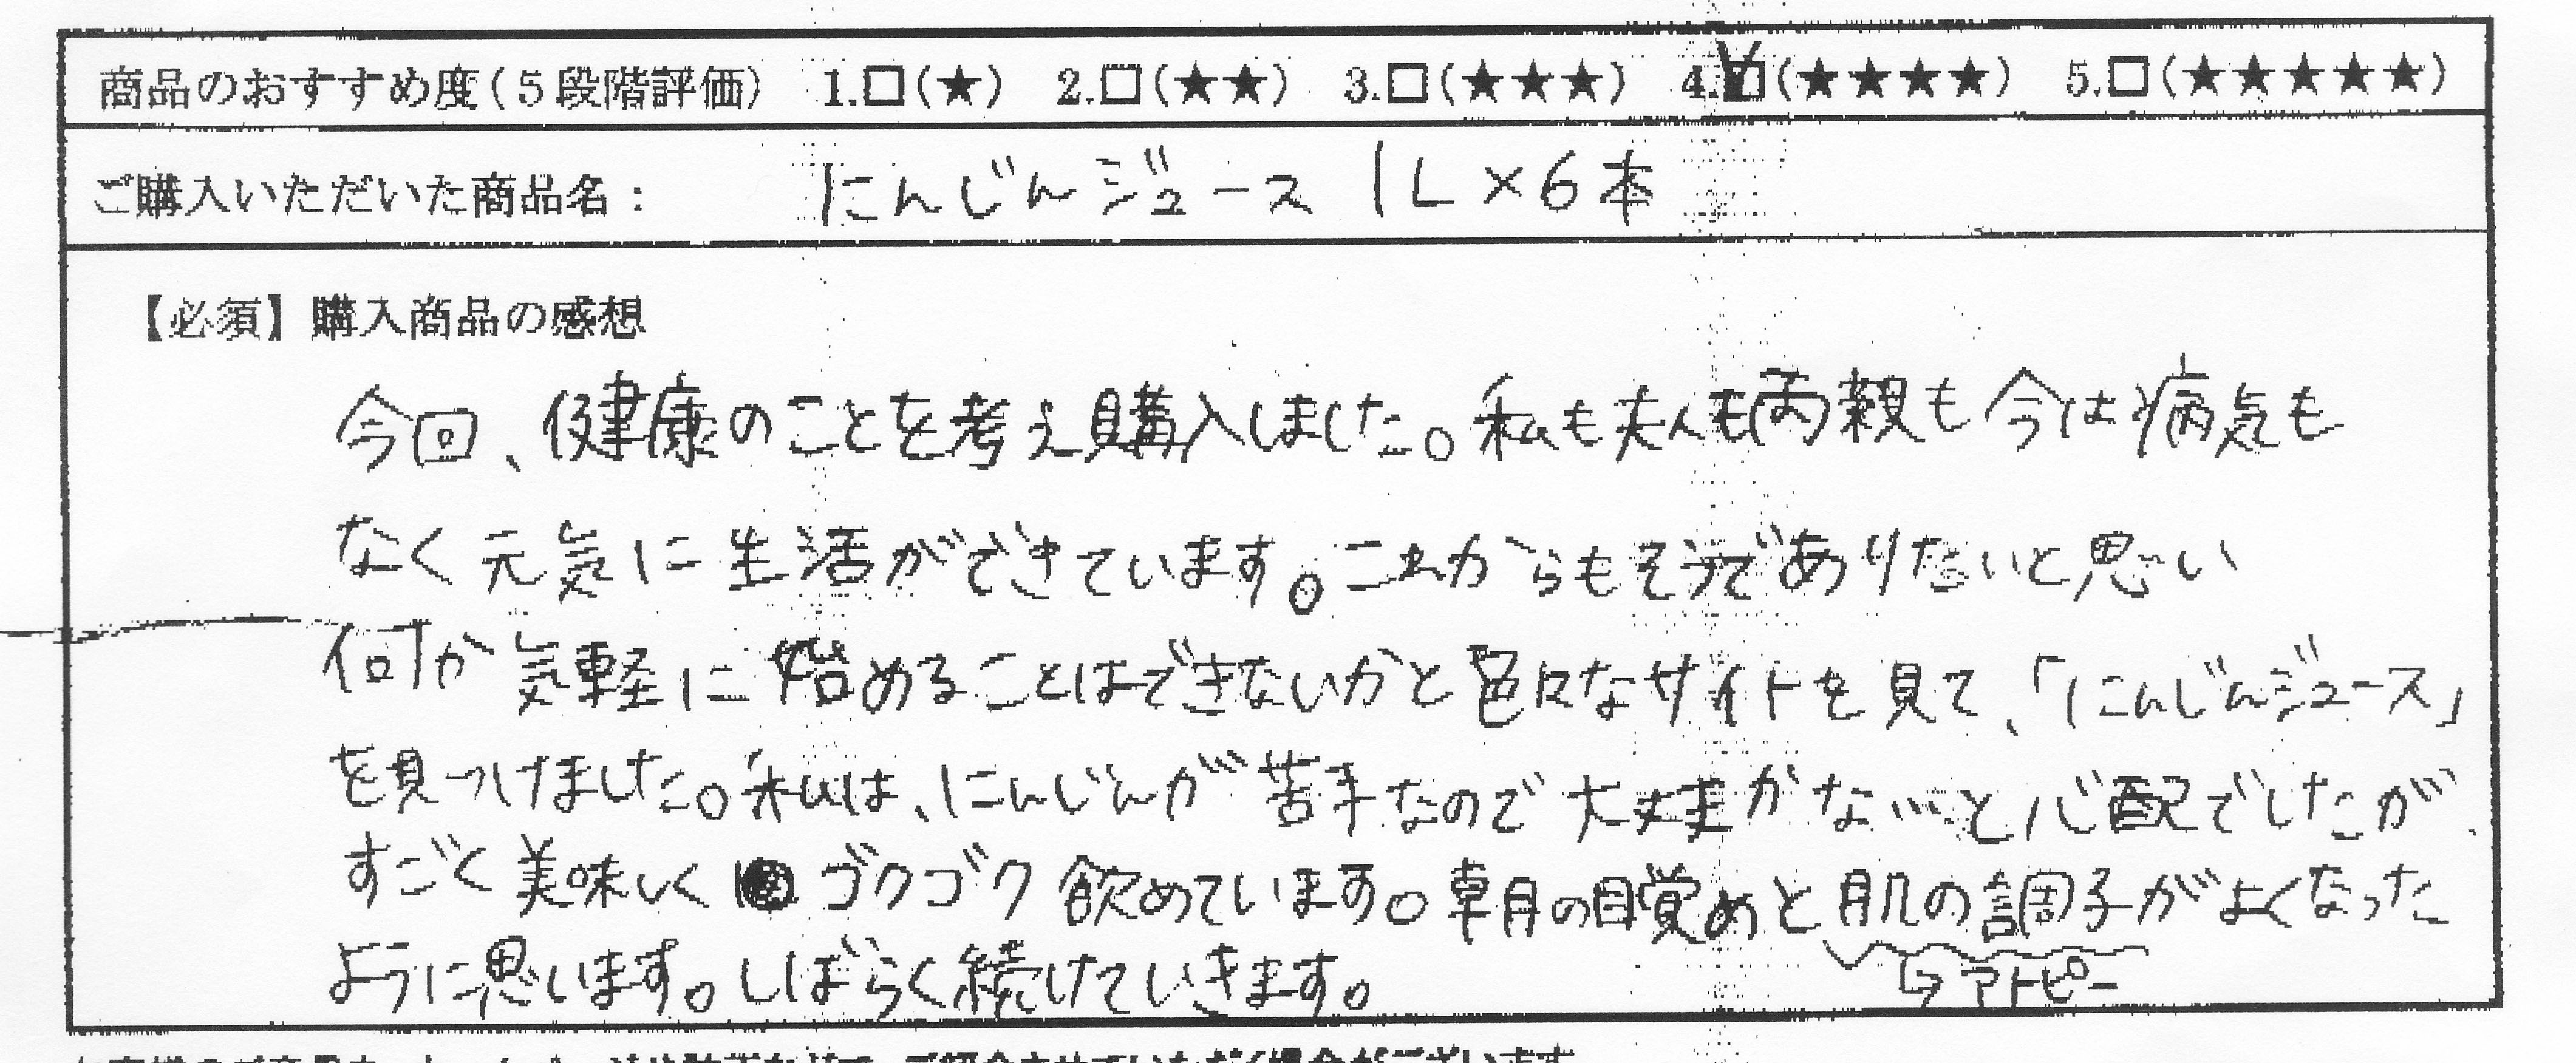 商品のおすすめ度(5段階評価) 1.□(★) 2.□(★★) 3.□(★★★) 4.☑(★★★★) 5.□(★★★★★)
ご購入いただいた商品名: にんじんジュース 1L×6本
【必須】購入商品の感想
今回、健康のことを考え購入しました。私も夫も両親も今は病気も
なく元気に生活ができています。これからもそうでありたいと思い
何か気軽に始めることはできないかと色々なサイトを見て、「にんじんジュース」
を見つけました。私は、にんじんが苦手なので大丈夫かなぁと心配でしたが、
すごく美味しくゴクゴク飲めています。朝の目覚めと肌の調子がよくなった
ように思います。しばらく続けていきます。
↳アトピー